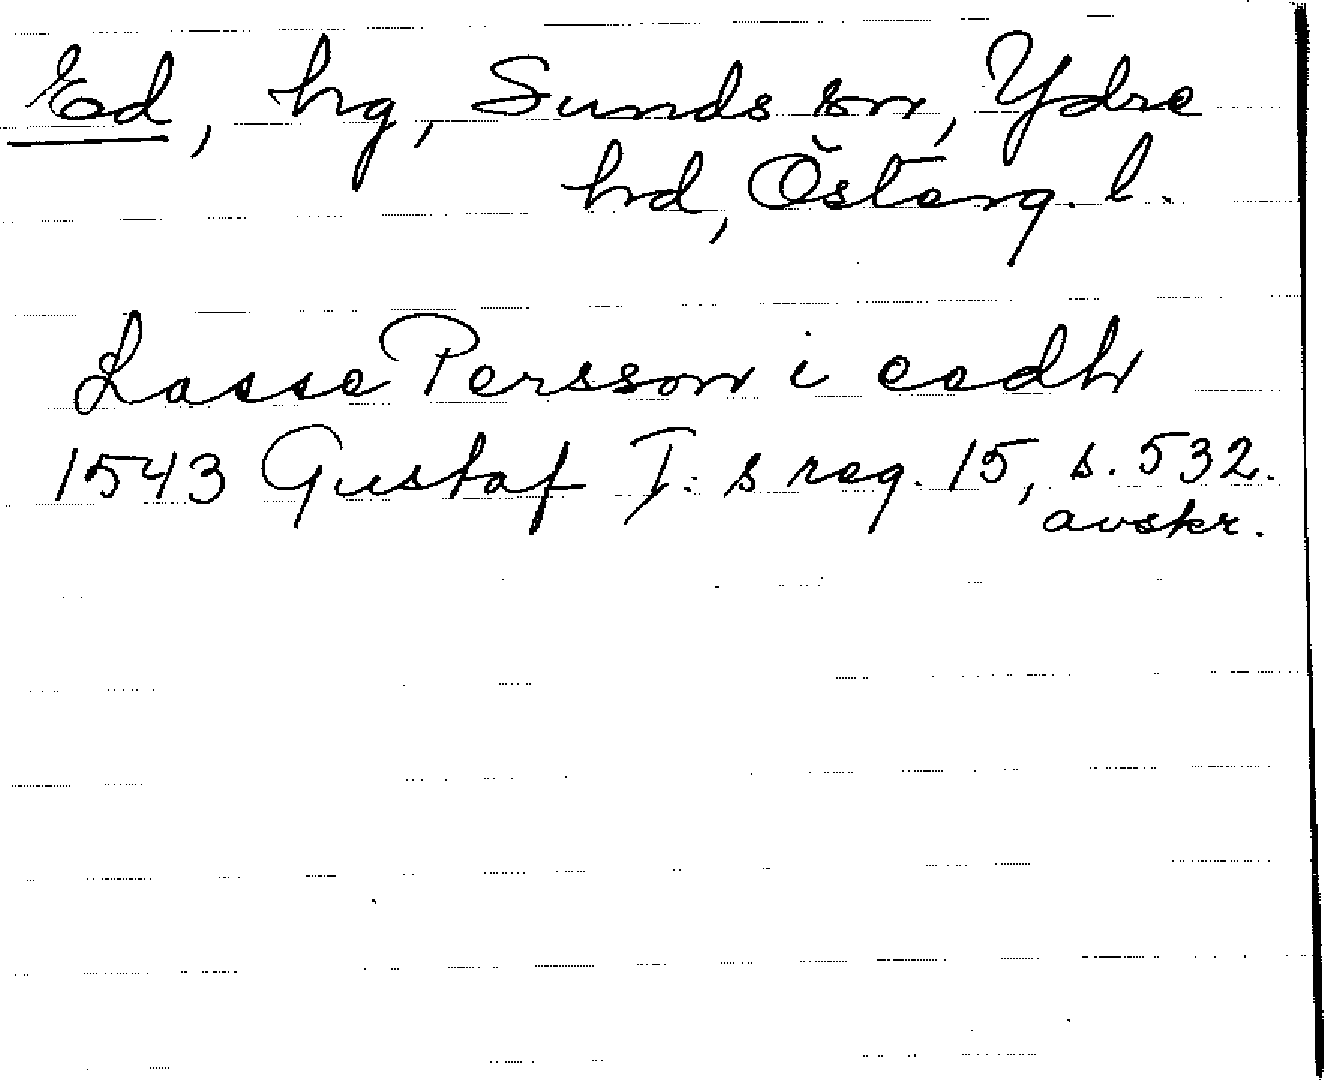 Ed, hg, Sunds sn, Ydre
hd, Österg. l.
Lasse Persson i eedh
1543 Gustaf I: s reg. 15, s. 532.
avskr.